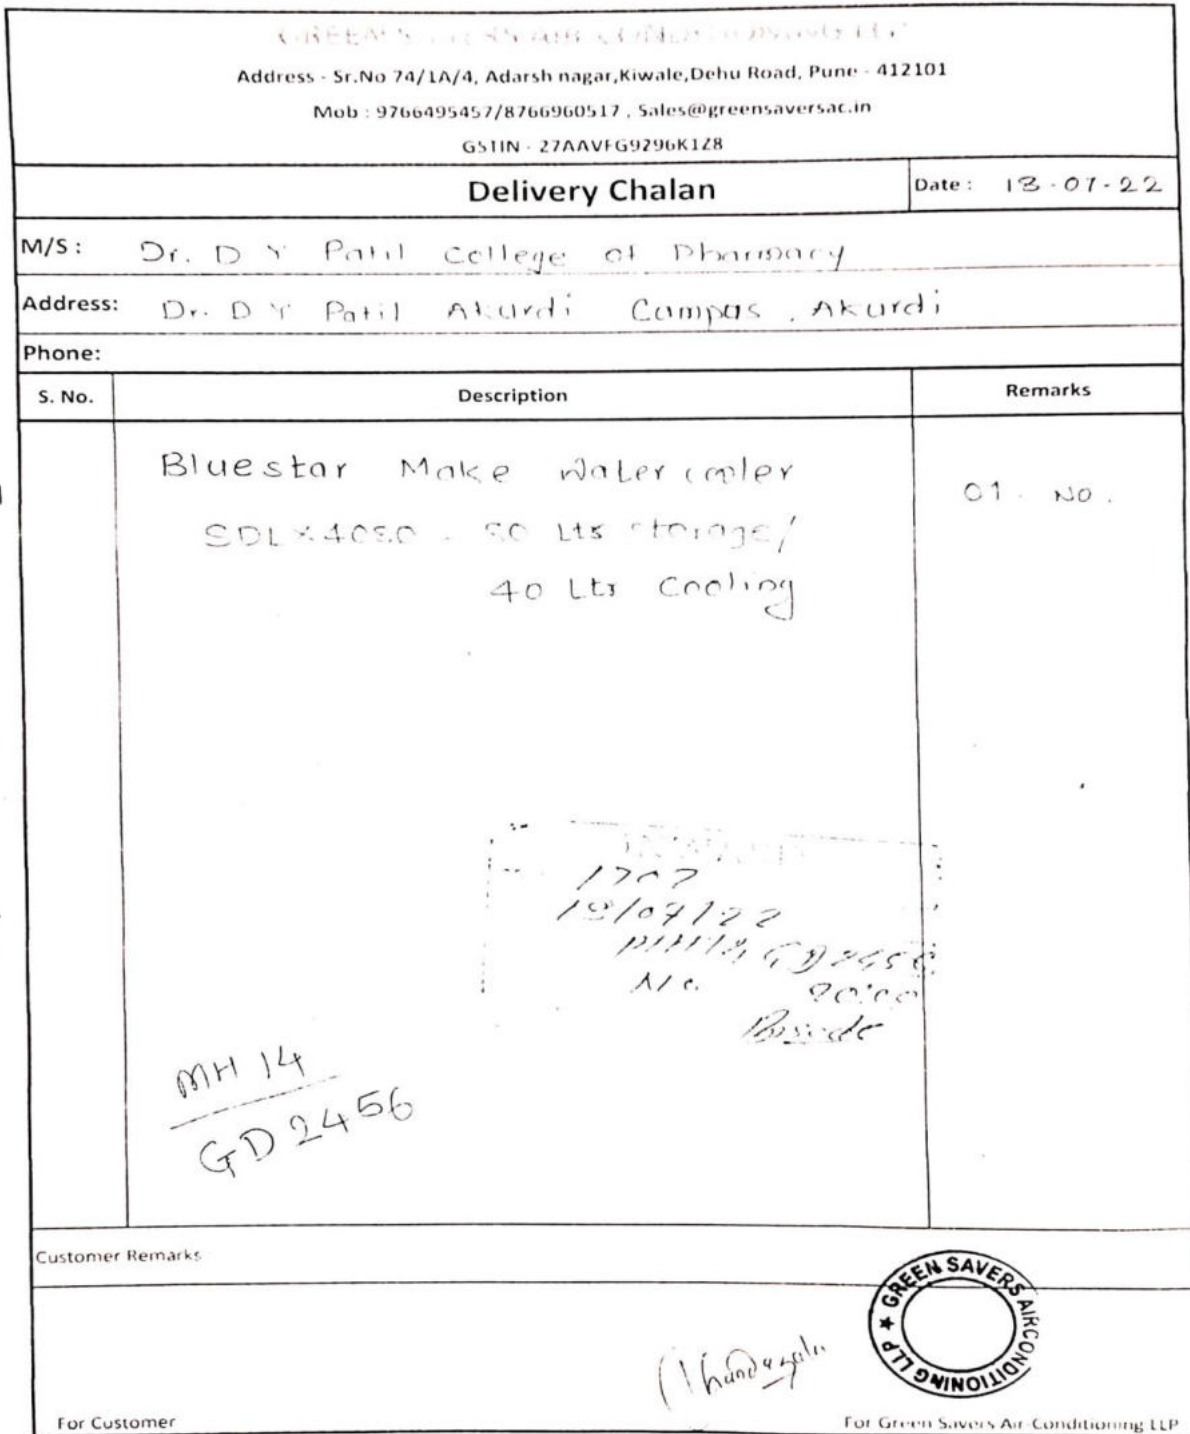 GREEN SAVERS AIR CONDITIONING LLP
Address - Sr.No 74/1A/4, Adarsh nagar,Kiwale,Dehu Road, Pune - 412101
Mob : 9766495457/8766960517 , Sales@greensaversac.in
GSTIN - 27AAVFG9296K1Z8
Delivery Chalan Date : 13-07-22
M/S : Dr. D Y Patil College of Pharmacy
Address: Dr. D Y Patil Akurdi Campus, Akurdi
Phone:
S. No. Description Remarks
Bluestar Make Water cooler 01. NO.
SDLX4080 - 80 Lts storage/
40 Lts Cooling
INWARD
1707
18/07/22
MH14 GD2456
MH 14
GD 2456
Customer Remarks
GREEN SAVERS AIRCONDITIONING LLP ★
For Customer For Green Savers Air-Conditioning LLP